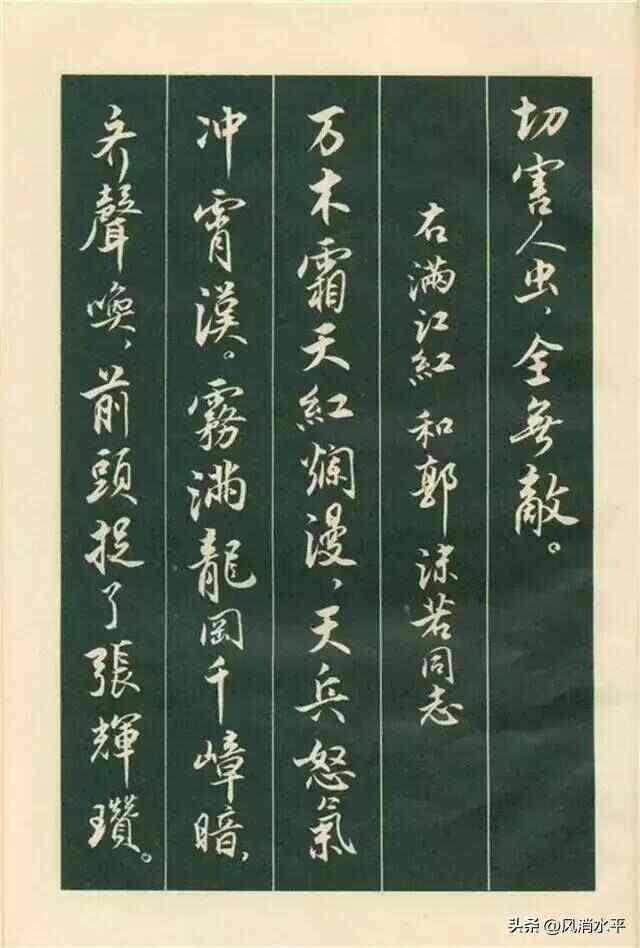 切害人虫，全無敵。
右滿江紅 和郭沫若同志
万木霜天紅爛漫，天兵怒氣
冲霄漢。霧满龍岡千嶂暗，
齐聲喚，前頭捉了張輝瓚。
头条 @风消水平